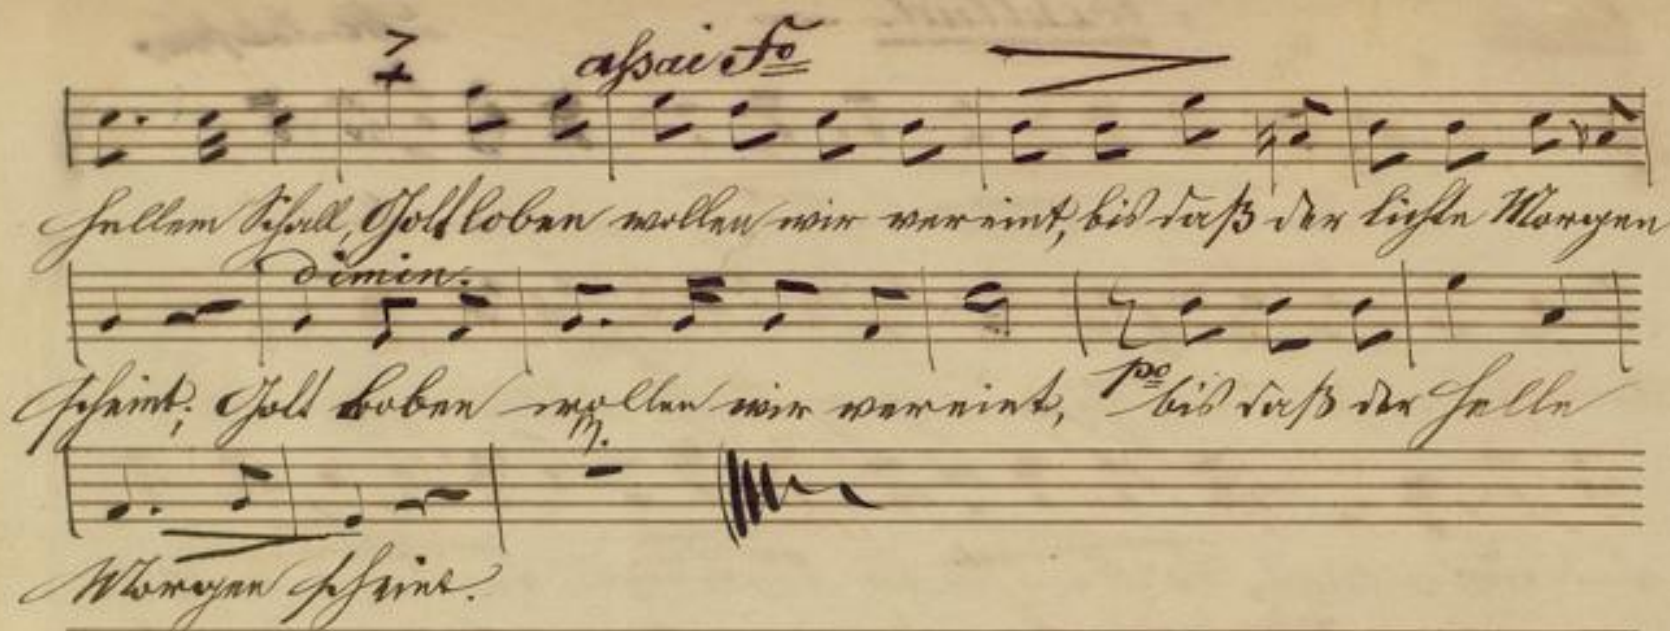 assai Fo
hellem Schall, Gott loben wollen wir vereint, bis daß der lichte Morgen
dimin.
scheint; Gott loben wollen wir vereint, po bis daß der helle
Morgen scheint.